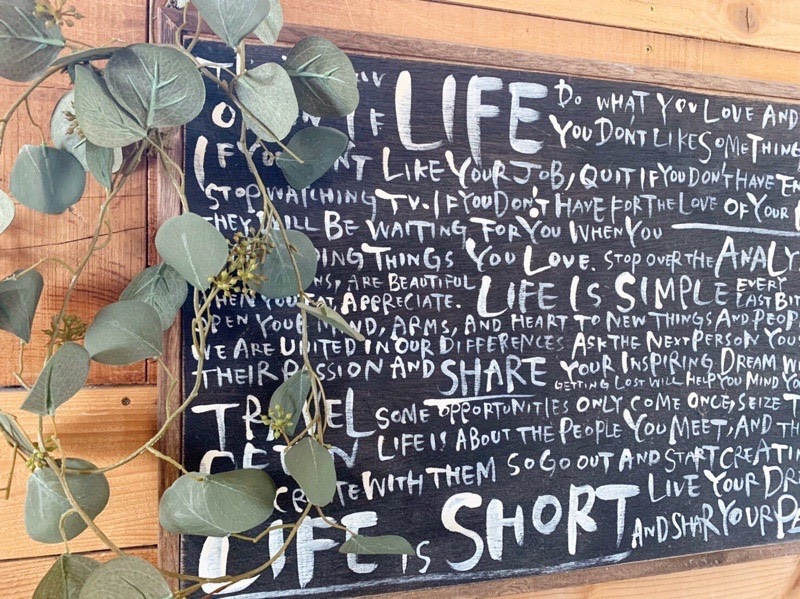 LIFE DO WHAT YOU LOVE AND
IF YOU DON'T LIKE SOMETHING
IF YOU LIKE YOUR JOB, QUIT IF YOU DON'T HAVE
STOP WATCHING TV. IF YOU DON'T HAVE FOR THE LOVE OF YOUR
THEY WILL BE WAITING FOR YOU WHEN YOU
THINGS YOU LOVE. STOP OVER THE
ARE BEAUTIFUL
WHEN YOU EAT, APPRECIATE. LIFE IS SIMPLE EVERY LAST
OPEN YOUR MIND, ARMS, AND HEART TO NEW THINGS AND
WE ARE UNITED IN OUR DIFFERENCES ASK THE NEXT PERSON YOU
THEIR PASSION AND SHARE YOUR INSPIRING DREAM
GETTING LOST WILL HELP YOU MIND
TRAVEL SOME OPPORTUNITIES ONLY COME ONCE, SEIZE
LIFE IS ABOUT THE PEOPLE YOU MEET, AND
WITH THEM SO GO OUT AND START
LIFE IS SHORT LIVE YOUR
AND SHAR YOUR